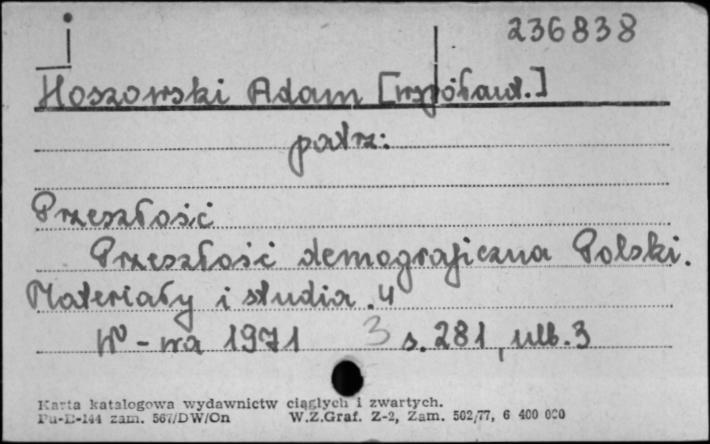 236838
Hoszowski Adam [współaut.]
patrz:
Przeszłość
Przeszłość demograficzna Polski.
Materiały i studia. 4
W-wa 1971 3 s. 281, nlb. 3
Karta katalogowa wydawnictw ciągłych i zwartych.
Pu-E-144 zam. 567/DW/On W.Z.Graf. Z-2, Zam. 502/77, 6 400 000